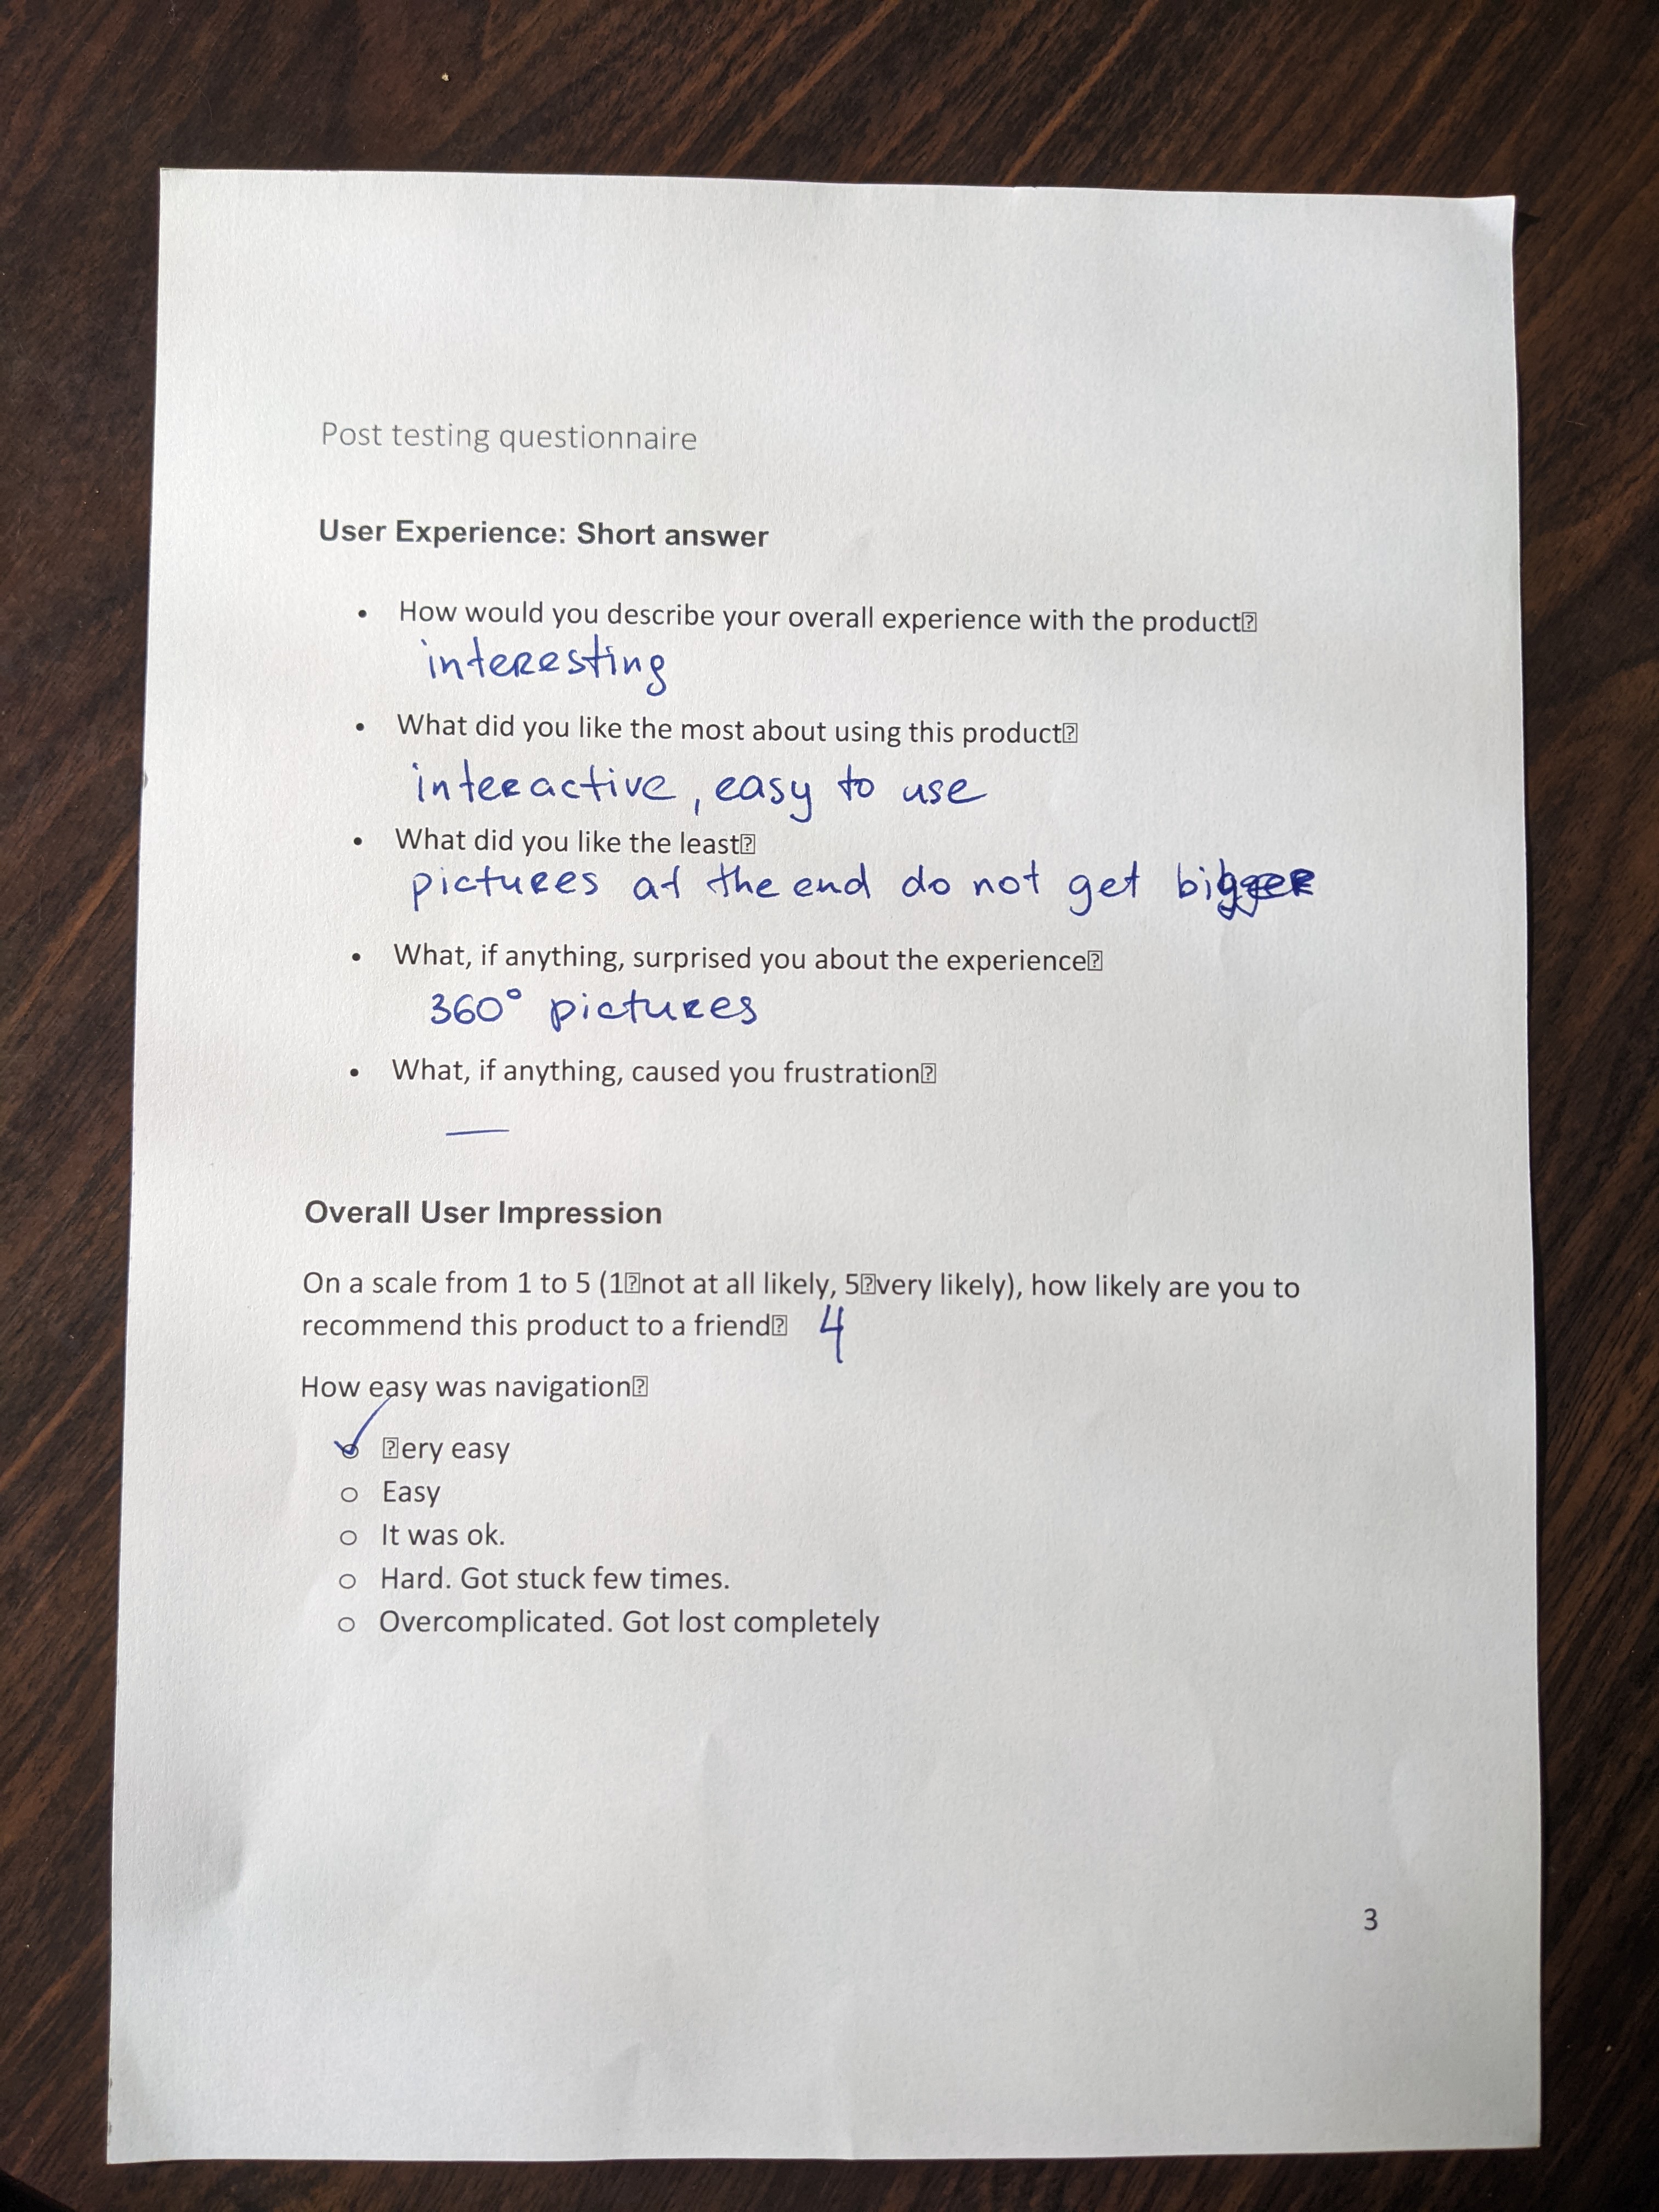 Post testing questionnaire
User Experience: Short answer
• How would you describe your overall experience with the product⍰
interesting
• What did you like the most about using this product⍰
interactive, easy to use
• What did you like the least⍰
pictures at the end do not get bigger
• What, if anything, surprised you about the experience⍰
360° pictures
• What, if anything, caused you frustration⍰
—
Overall User Impression
On a scale from 1 to 5 (1⍰not at all likely, 5⍰very likely), how likely are you to
recommend this product to a friend⍰ 4
How easy was navigation⍰
✓ ⍰ery easy
o Easy
o It was ok.
o Hard. Got stuck few times.
o Overcomplicated. Got lost completely
3